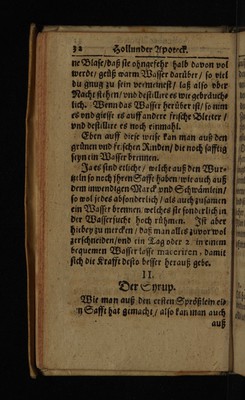 32 Hollunder Apoteck.
ne Blase/daß sie ohngefehr halb davon vol
werde/ geüß warm Wasser darüber/ so viel
du gnug zu sein vermeinest/ laß also uber
Nacht stehen/ und destillire es wie gebräuch-
lich. Wenn das Wasser herüber ist/ so nim
es und giesse es auff andere frische Bletter/
und destillire es noch einmahl.
Eben auff diese weise kan man auß den
grünen und frischen Rinden/ die noch safftig
seyn ein Wasser brennen.
Ja es sind etliche/ welche auß den Wur-
tzeln so noch ihren Safft haben/wie auch auß
dem inwendigen Marck und Schwämlein/
so wol jedes absonderlich/ als auch zusamen
ein Wasser brennen/ welches sie sonderlich in
der Wassersucht hoch rühmen. Ist aber
hiebey zu mercken/ daß man alles zuvor wol
zerschneiden/und ein Tag oder 2. in einem
bequemen Wasser lasse maceriren, damit
sich die Krafft desto besser herauß gebe.
II.
Der Syrup.
Wie man auß den ersten Sprößlein ei-
n Safft hat gemacht/ also kan man auch
auß